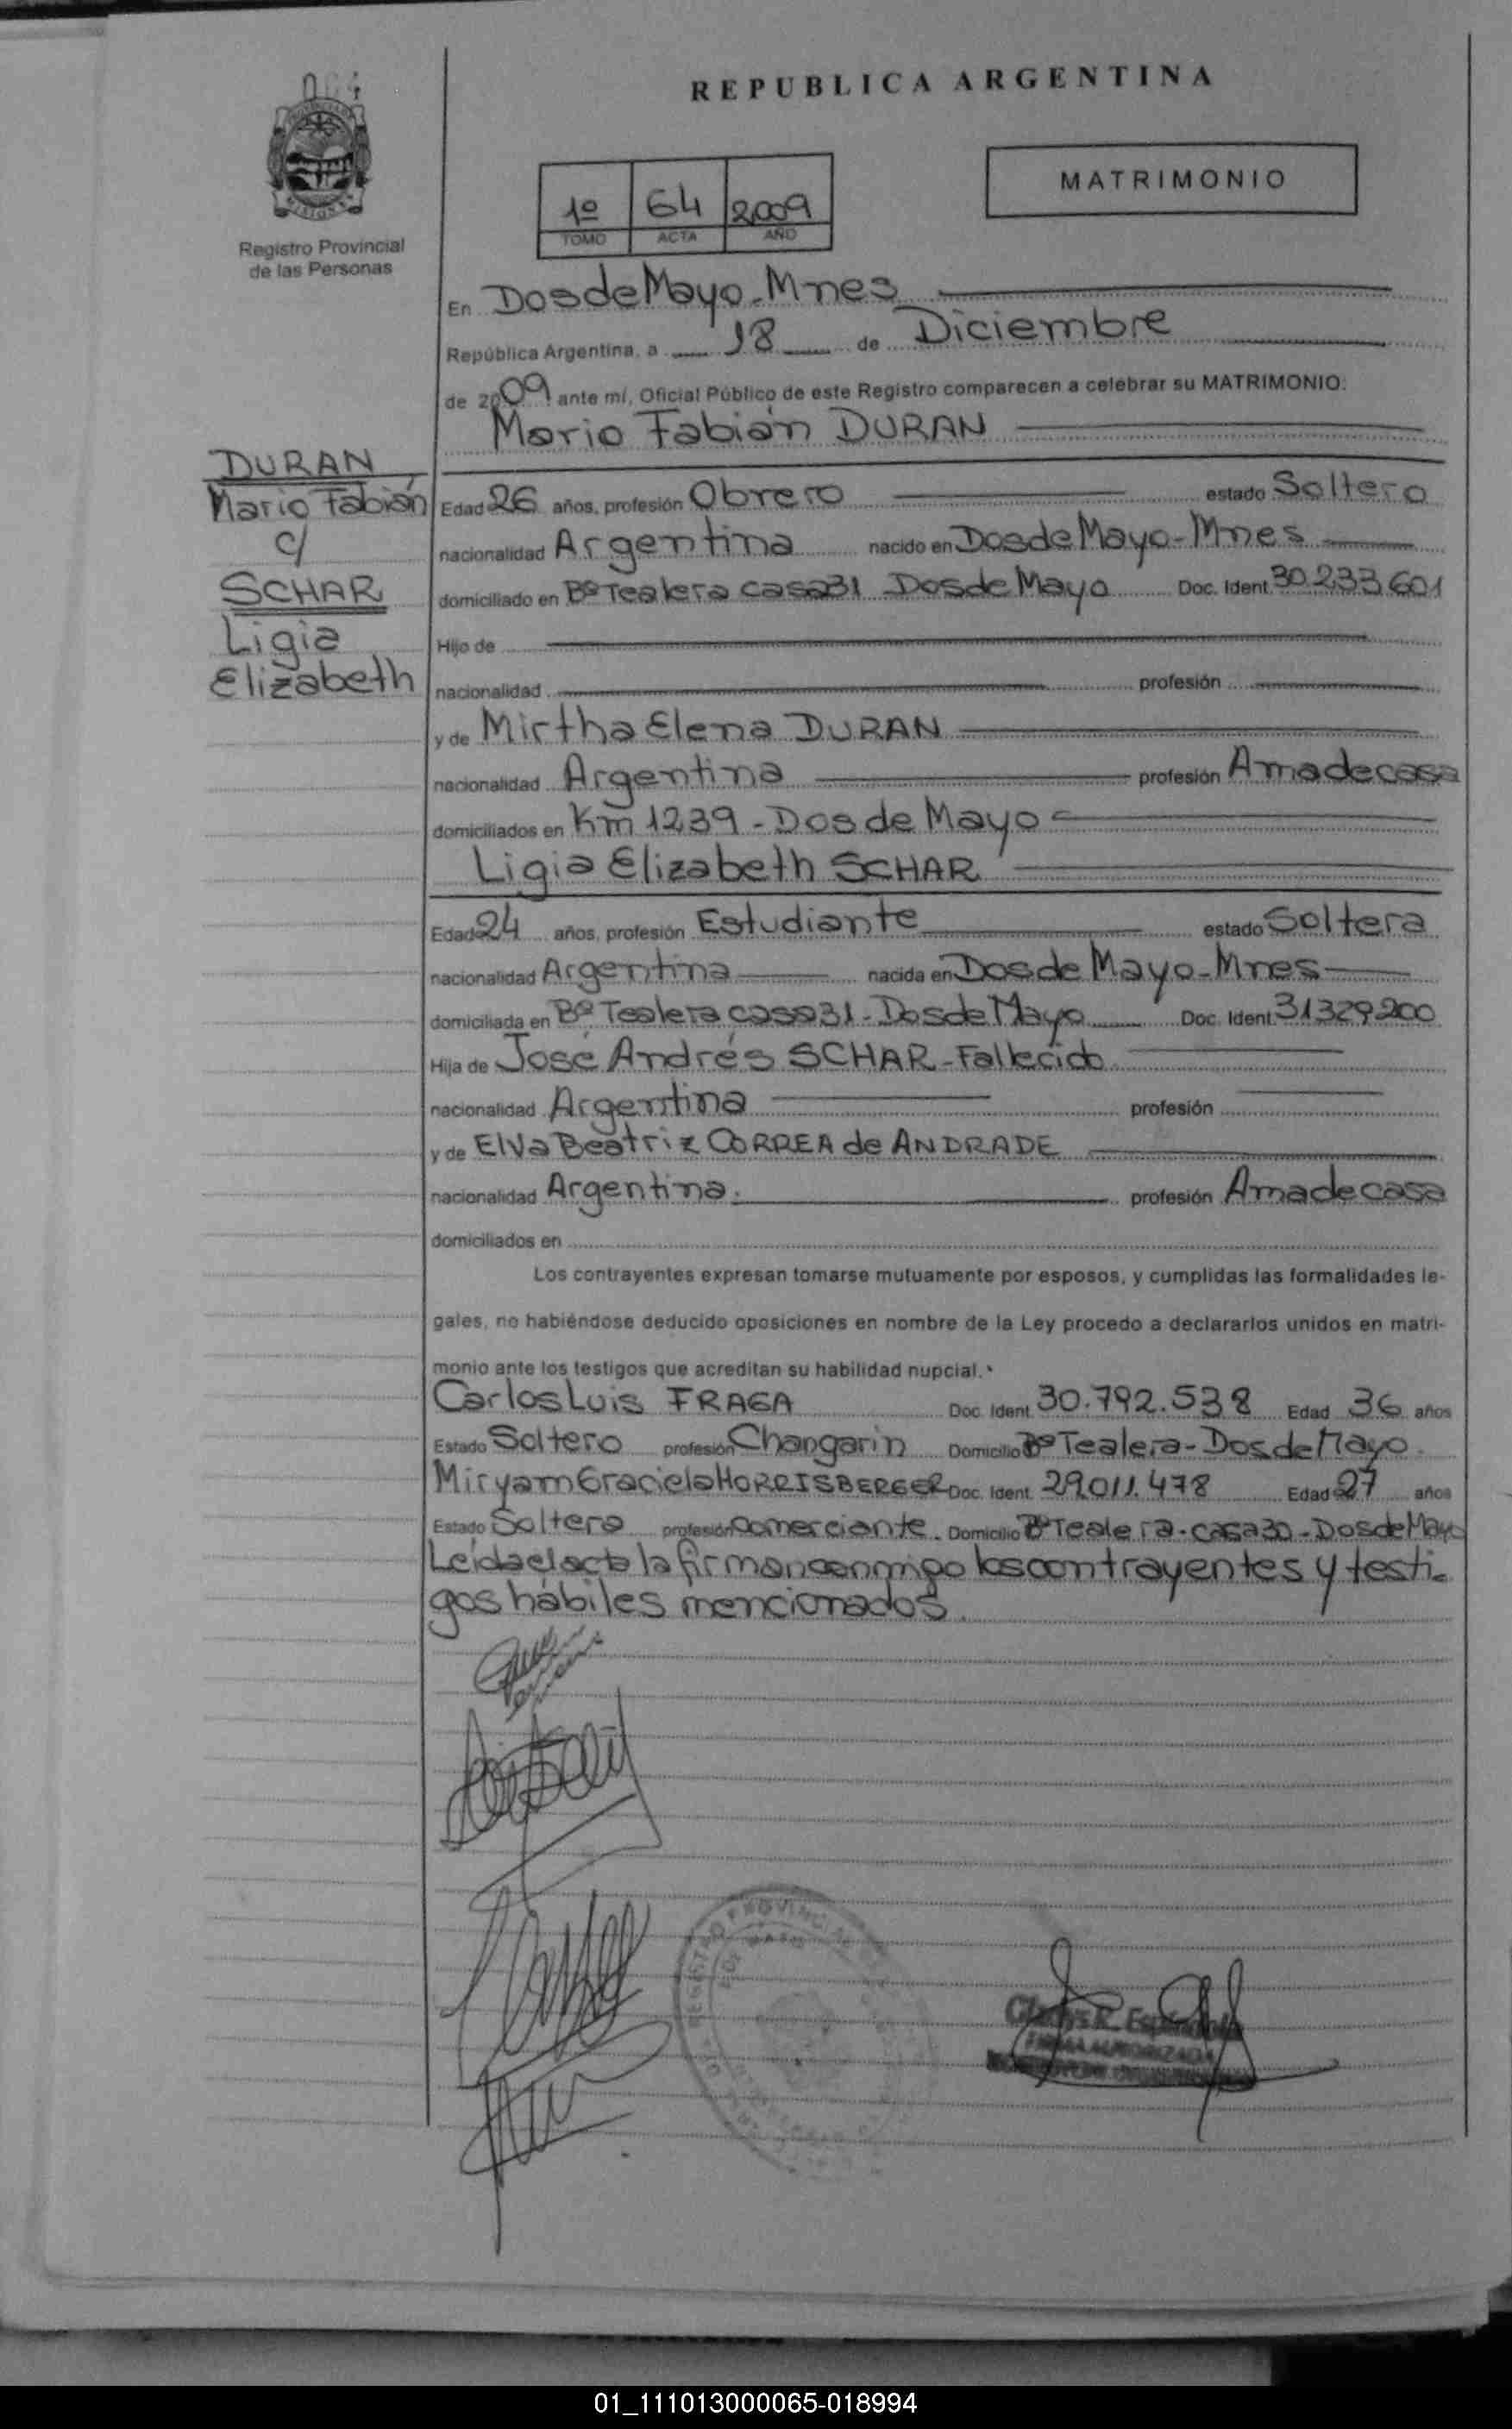 004
REPUBLICA ARGENTINA
MATRIMONIO
1º 64 2009
TOMO ACTA AÑO
Registro Provincial
de las Personas
En Dos de Mayo - Mnes
República Argentina, a 18 de Diciembre
de 2009 ante mí, Oficial Público de este Registro comparecen a celebrar su MATRIMONIO:
Mario Fabián DURAN
DURAN
Mario Fabián
c/
SCHAR
Ligia
Elizabeth
Edad 26 años, profesión Obrero estado Soltero
nacionalidad Argentina nacido en Dos de Mayo - Mnes
domiciliado en Bº Tealera casa 31 Dos de Mayo Doc. Ident. 30.233.601
Hijo de
nacionalidad profesión
y de Mirtha Elena DURAN
nacionalidad Argentina profesión Ama de casa
domiciliados en Km 1239 - Dos de Mayo
Ligia Elizabeth SCHAR
Edad 24 años, profesión Estudiante estado Soltera
nacionalidad Argentina nacida en Dos de Mayo - Mnes
domiciliada en Bº Tealera casa 31 - Dos de Mayo Doc. Ident. 31329200
Hija de José Andrés SCHAR - Fallecido
nacionalidad Argentina profesión
y de Elva Beatriz CORREA de ANDRADE
nacionalidad Argentina. profesión Ama de casa
domiciliados en
Los contrayentes expresan tomarse mutuamente por esposos, y cumplidas las formalidades le-
gales, no habiéndose deducido oposiciones en nombre de la Ley procedo a declararlos unidos en matri-
monio ante los testigos que acreditan su habilidad nupcial.
Carlos Luis FRAGA Doc. Ident. 30.792.538 Edad 36 años
Estado Soltero profesión Changarin Domicilio Bº Tealera - Dos de Mayo.
Miryam Graciela HORRISBERGER Doc. Ident. 29.011.478 Edad 27 años
Estado Soltera profesión Comerciante. Domicilio Bº Tealera - casa 30 - Dos de Mayo
Leída el acta la firman conmigo los contrayentes y testi-
gos hábiles mencionados.
REGISTRO PROVINCIAL
DOS MAYO
Gladys R.
FIRMA AUTORIZADA
01_111013000065-018994